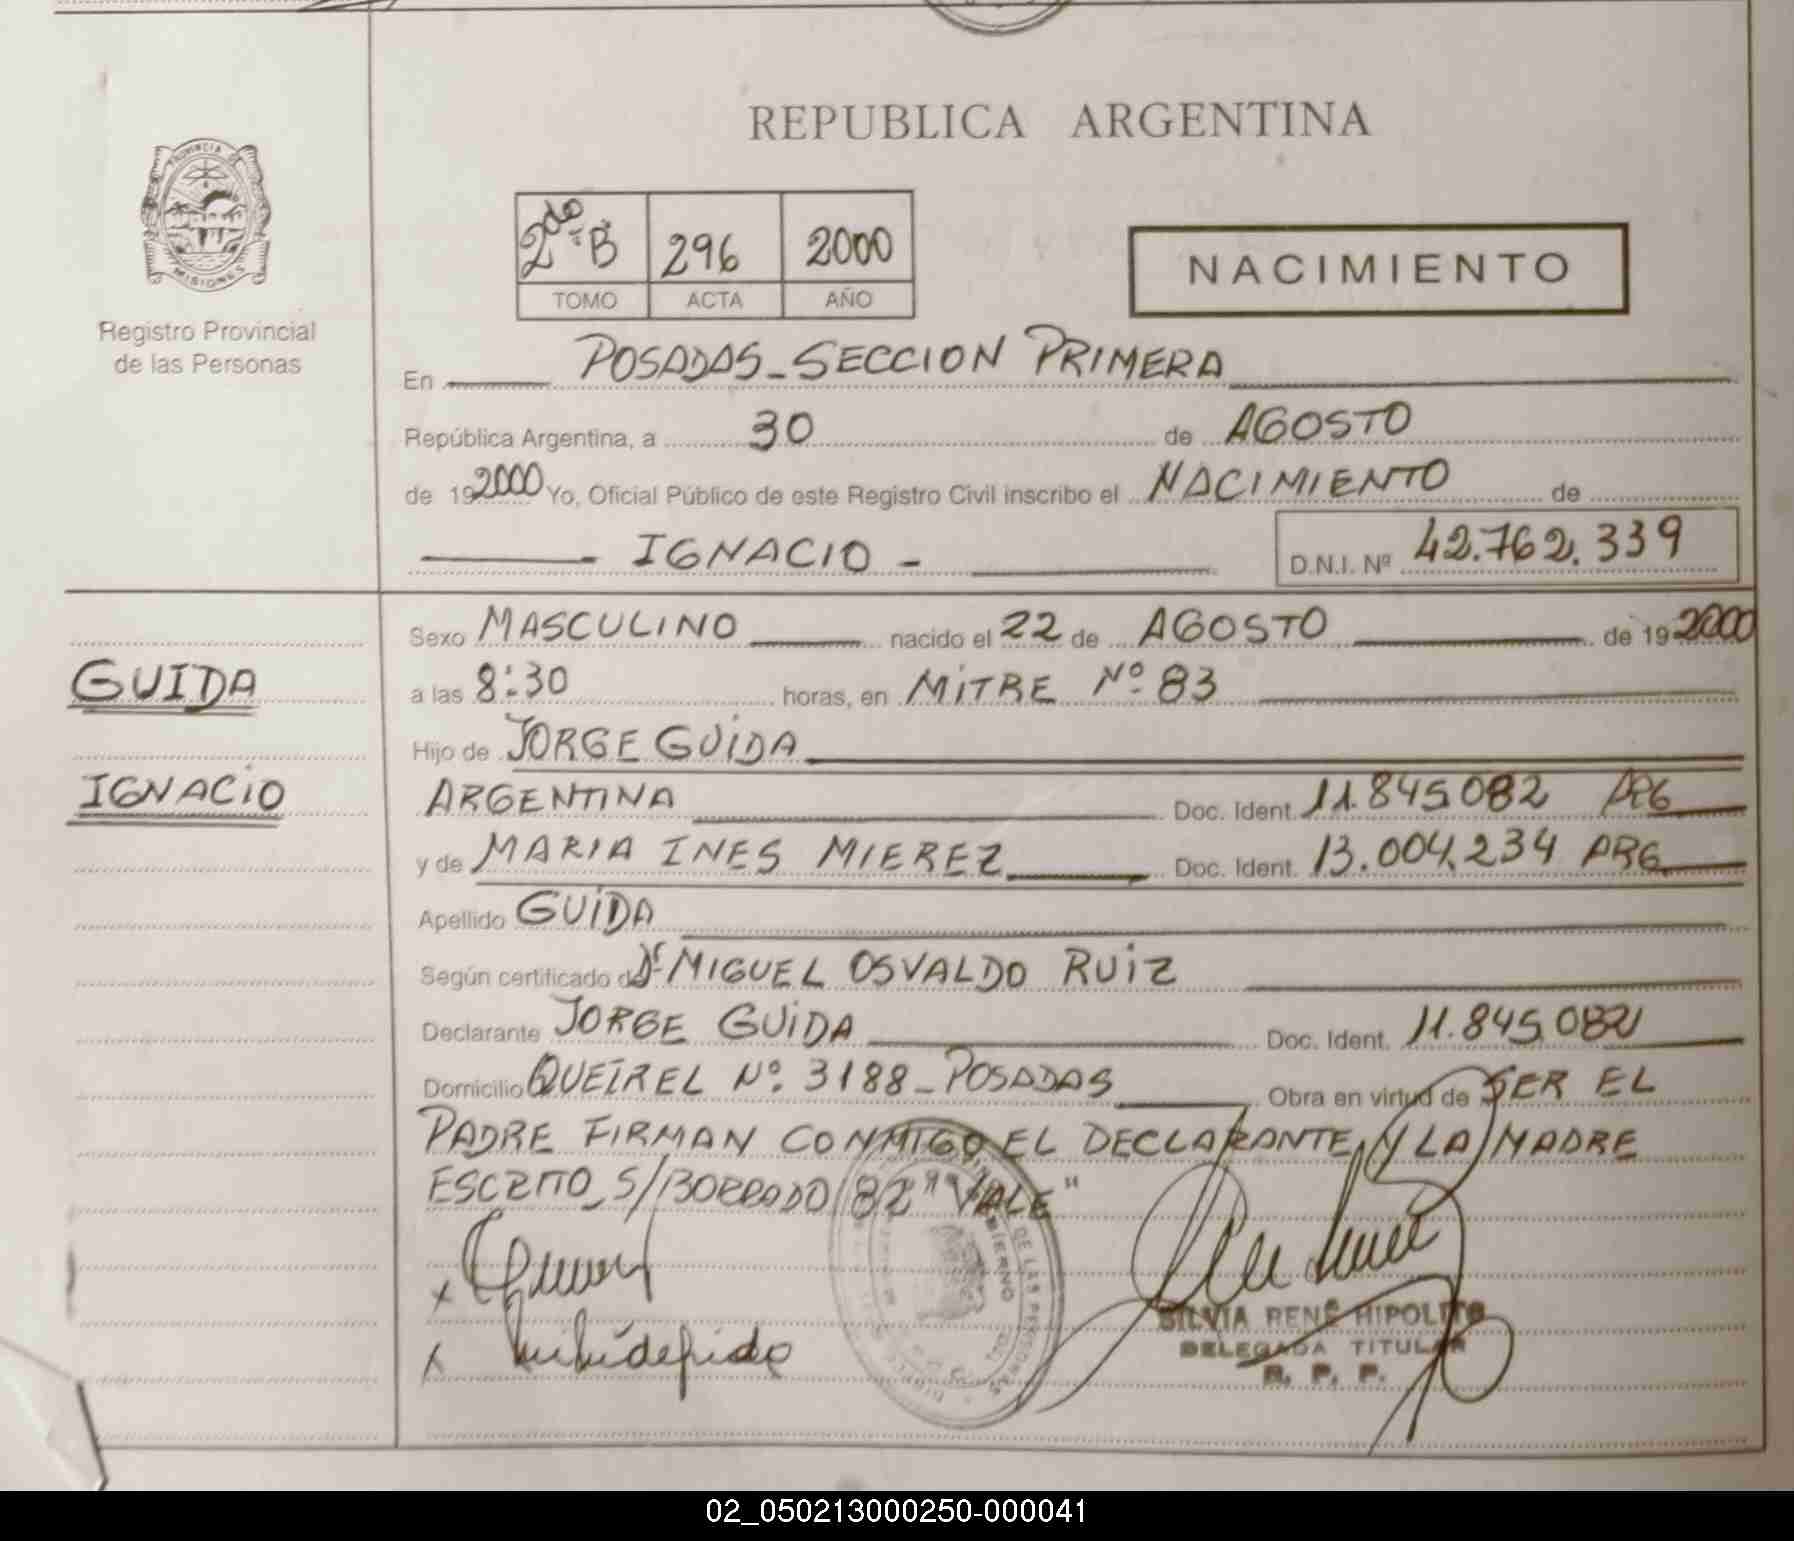 REPUBLICA ARGENTINA
PROVINCIA DE
MISIONES
Registro Provincial
de las Personas
2do B 296 2000
TOMO ACTA AÑO
NACIMIENTO
En POSADAS_SECCION PRIMERA
República Argentina, a 30 de AGOSTO
de 192000 Yo, Oficial Público de este Registro Civil inscribo el NACIMIENTO de
IGNACIO - D.N.I. Nº 42.762.339
Sexo MASCULINO nacido el 22 de AGOSTO de 19 2000
GUIDA
a las 8:30 horas, en MITRE Nº 83
Hijo de JORGE GUIDA
IGNACIO
ARGENTINA Doc. Ident. 11.845.082 ARG
y de MARIA INES MIEREZ Doc. Ident. 13.004.234 ARG
Apellido GUIDA
Según certificado d Dr MIGUEL OSVALDO RUIZ
Declarante JORGE GUIDA Doc. Ident. 11.845.082
Domicilio QUEIREL Nº 3188_POSADAS Obra en virtud de SER EL
PADRE FIRMAN CONMIGO EL DECLARANTE Y LA MADRE
ESCRITO_S/BORRADO "82" "VALE"
SILVIA RENÉ HIPOLITO
DELEGADA TITULAR
R. P. P.
02_050213000250-000041